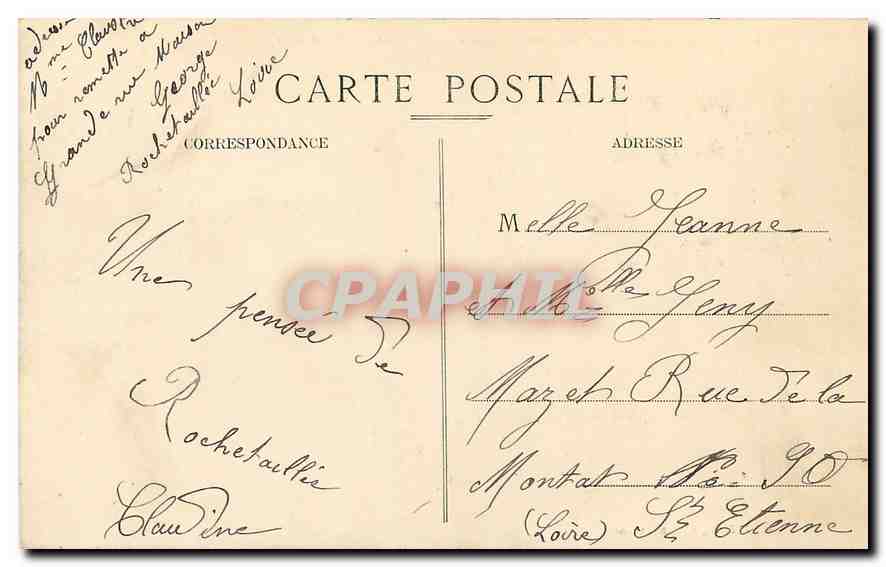 adresse
Mme Claudine
pour remettre a
Grande rue Maison
George
Rochetaillée
Loire
CARTE POSTALE
CORRESPONDANCE
ADRESSE
Une
pensée de
Rochetaillée
Claudine
Melle Jeanne
et Melle Jeny
Mazet Rue de la
Montat No 90
(Loire) St Etienne
CPAPHIL